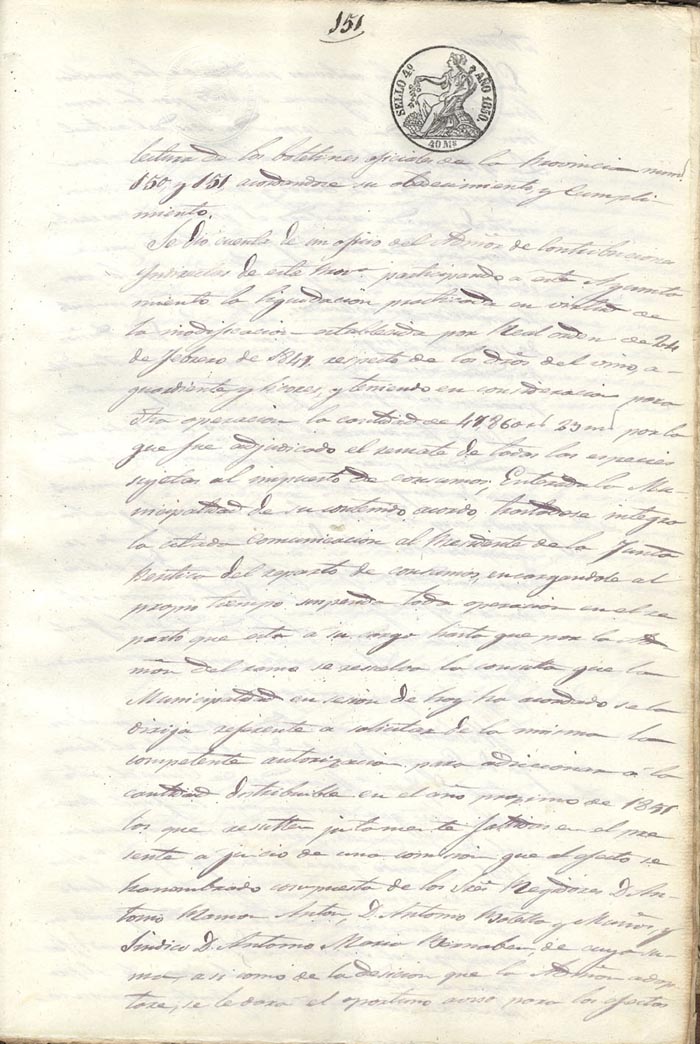 151
SELLO 4º AÑO 1850.
40 Ms
lectura de los boletines oficiales de la Provincia num.
150 y 151 acordandose su obedecimiento y Cumpli
miento.
Se dio cuenta de un oficio del Admor de Contribuciones
Indirectas de esta Prova participando a este Ayunta
miento la liquidacion practicada en virtud de
la modificacion establecida por Real orden de 24
de febrero de 1847. respecto de los dros del vino, a-
guardiente y licores, y teniendo en consideracion para
dha operacion la cantidad de 47860 rs 23 ms por la
que fue adjudicado el remate de todas las especies
sujetas al impuesto de consumos; Enterada la Mu-
nicipalidad de su contenido acordo, trasladase integro
la citada comunicacion al Presidente de la Junta
Peritica del reparto de consumos, encargandole al
propio tiempo suspenda toda operacion en el re
parto que esta a su cargo hasta que por la Ad
mon del ramo se resuelva la consulta que la
Municipalidad en sesion de hoy ha acordado se la
dirija referente a solicitar de la misma la
competente autorizacion para adicionar a la
cantidad distribuible en el año proximo de 1851
los que resulten justamente fallidos en el pre
sente a juicio de una comision que al efecto se
ha nombrado compuesta de los Sres Regidores D. An-
tonio Roman Anton, D. Antonio Botella y Muñoz y
Sindico D. Antonio Maria Bernabeu, de cuya su-
ma, asi como de la desicion que la Admon adop-
tare, se le dara el oportuno aviso para los efectos